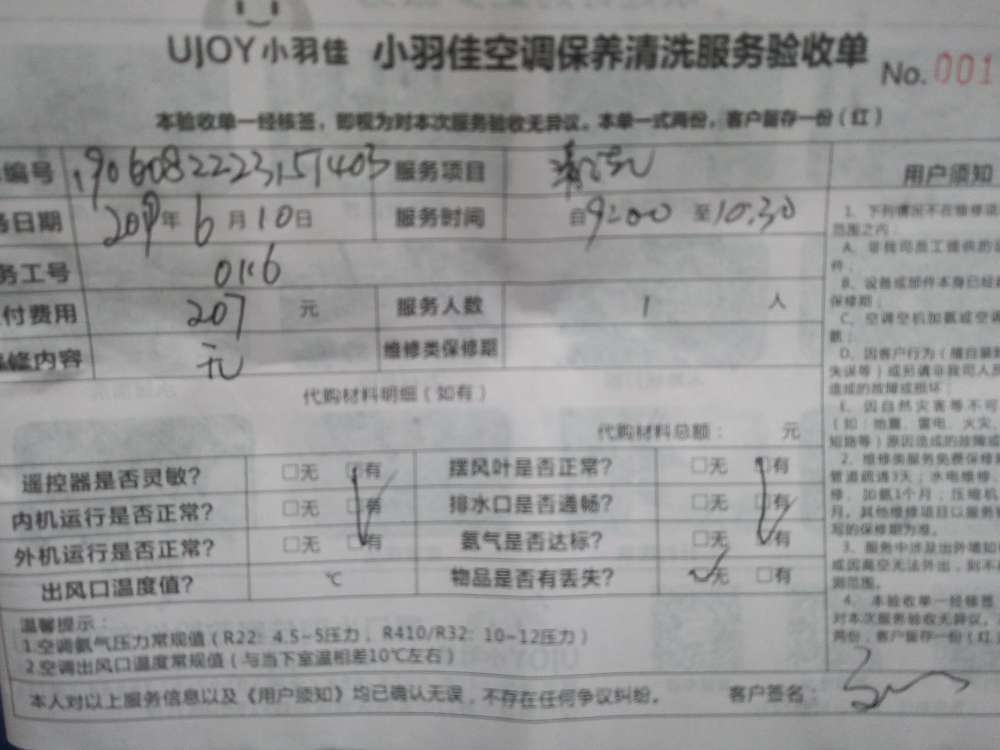 UJOY小羽佳 小羽佳空调保养清洗服务验收单 No.001
本验收单一经核签，即视为对本次服务验收无异议。本单一式两份，客户留存一份（红）
编号 1906082223151403 服务项目 清洗 用户须知
务日期 2019年6月10日 服务时间 自9:00 至10:30
务工号 0116
付费用 207 元 服务人数 1 人
维修内容 元 维修类保修期
代购材料明细（如有）
代购材料总额： 元
遥控器是否灵敏？ □无 □有 摆风叶是否正常？ □无 □有
内机运行是否正常？ □无 □有 排水口是否通畅？ □无 □有
外机运行是否正常？ □无 □有 氨气是否达标？ □无 □有
出风口温度值？ ℃ 物品是否有丢失？ □无 □有
温馨提示：
1.空调氨气压力常规值（R22：4.5~5压力，R410/R32：10~12压力）
2.空调出风口温度常规值（与当下室温相差10℃左右）
本人对以上服务信息以及《用户须知》均已确认无误，不存在任何争议纠纷。 客户签名：
1、下列情况不在维修项
范围之内：
A、非我司员工提供的
件；
B、设备或部件本身已经
保修期；
C、空调空机加氨或空调
氨；
D、因客户行为（擅自
失误等）或另请非我司人员
造成的故障或损坏；
E、因自然灾害等不可
（如：地震、雷电、火灾、
短路等）原因造成的故障或
2、维修类服务免费保修
管道疏通7天；水电维修、
修、加氨1个月；压缩机
月。其他维修项目以服务
写的保修期为准。
3、服务中涉及出外墙如
或因高空无法外出，则不
测范围。
4、本验收单一经核签
对本次服务验收无异议。
两份，客户留存一份（红